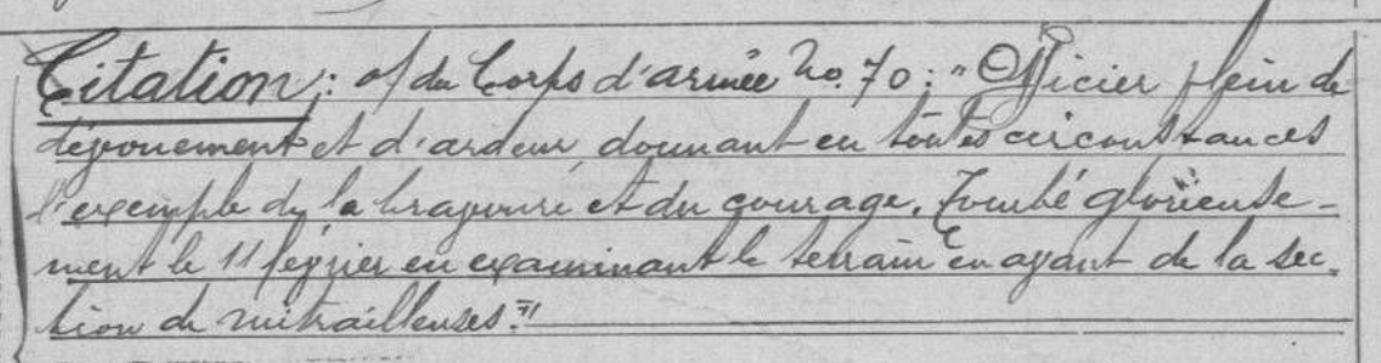 Citation: o/ du Corps d'armée No. 70: "Officier plein de
dévouement et d'ardeur, donnant en toutes circonstances
l'exemple de la bravoure et du courage. Tombé glorieuse-
ment le 11 février en examinant le terrain en avant de la sec-
tion de mitrailleuses."